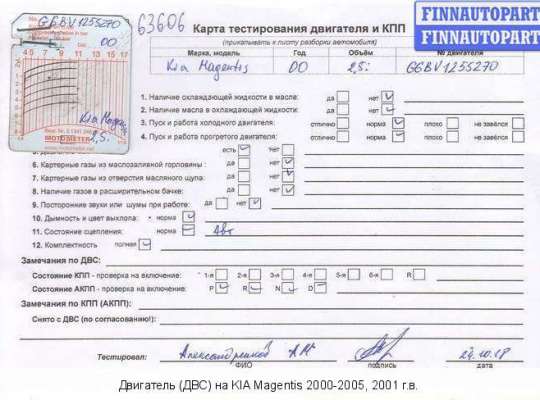 FINNAUTOPART
FINNAUTOPART
G6BV1255270
00
4 5 7 9 11 13 15 17
Kia Magentis
2,5i
MOTOMETER
63606
Карта тестирования двигателя и КПП
(прикатывать к листу разборки автомобиля)
Марка, модель Год Объём № двигателя
Kia Magentis 00 2,5i G6BV1255270
1. Наличие охлаждающей жидкости в масле: да нет
2. Наличие масла в охлаждающей жидкости: да нет
3. Пуск и работа холодного двигателя: отлично норма плохо не завёлся
4. Пуск и работа прогретого двигателя: отлично норма плохо не завёлся
есть нет
6. Картерные газы из маслозаливной горловины: да нет
7. Картерные газы из отверстия масляного щупа: да нет
8. Наличие газов в расширительном бачке: да нет
9. Посторонние звуки или шумы при работе: да нет
10. Дымность и цвет выхлопа: норма
11. Состояние сцепления: норма Авт
12. Комплектность полная
Замечания по ДВС:
Состояние КПП - проверка на включение: 1-я 2-я 3-я 4-я 5-я 6-я R
Состояние АКПП - проверка на включение: P R N D
Замечания по КПП (АКПП):
Снято с ДВС (по согласованию!):
Тестировал: А.М. 24.10.18
ФИО подпись дата
Двигатель (ДВС) на KIA Magentis 2000-2005, 2001 г.в.